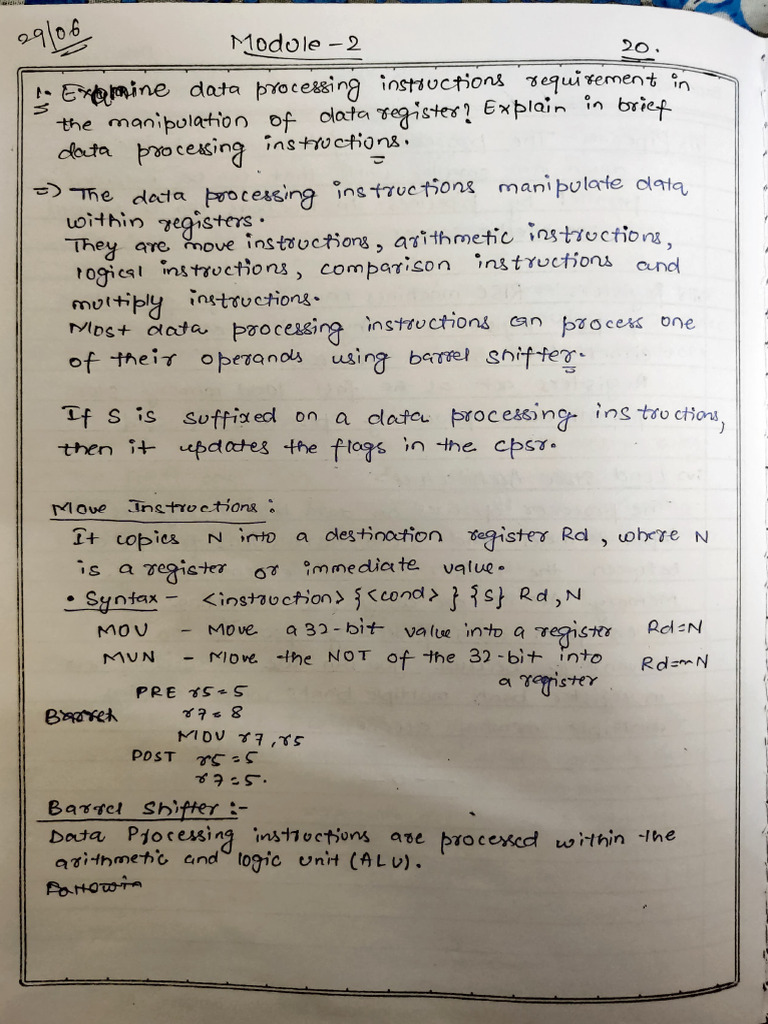 29/06
Module - 2
20.
1. Examine data processing instructions requirement in
the manipulation of data register? Explain in brief
data processing instructions.
=> The data processing instructions manipulate data
within registers.
They are move instructions, arithmetic instructions,
logical instructions, comparison instructions and
multiply instructions.
Most data processing instructions can process one
of their operands using barrel shifter.
If S is suffixed on a data processing instructions,
then it updates the flags in the cpsr.
Move Instructions :
It copies N into a destination register Rd, where N
is a register or immediate value.
• Syntax - <instruction> {<cond> } {S} Rd, N
MOV - Move a 32-bit value into a register Rd=N
MVN - Move the NOT of the 32-bit into Rd=~N
a register
PRE r5=5
r7=8
MOV r7, r5
POST r5=5
r7=5.
Barrel Shifter :-
Data Processing instructions are processed within the
arithmetic and logic unit (ALU).